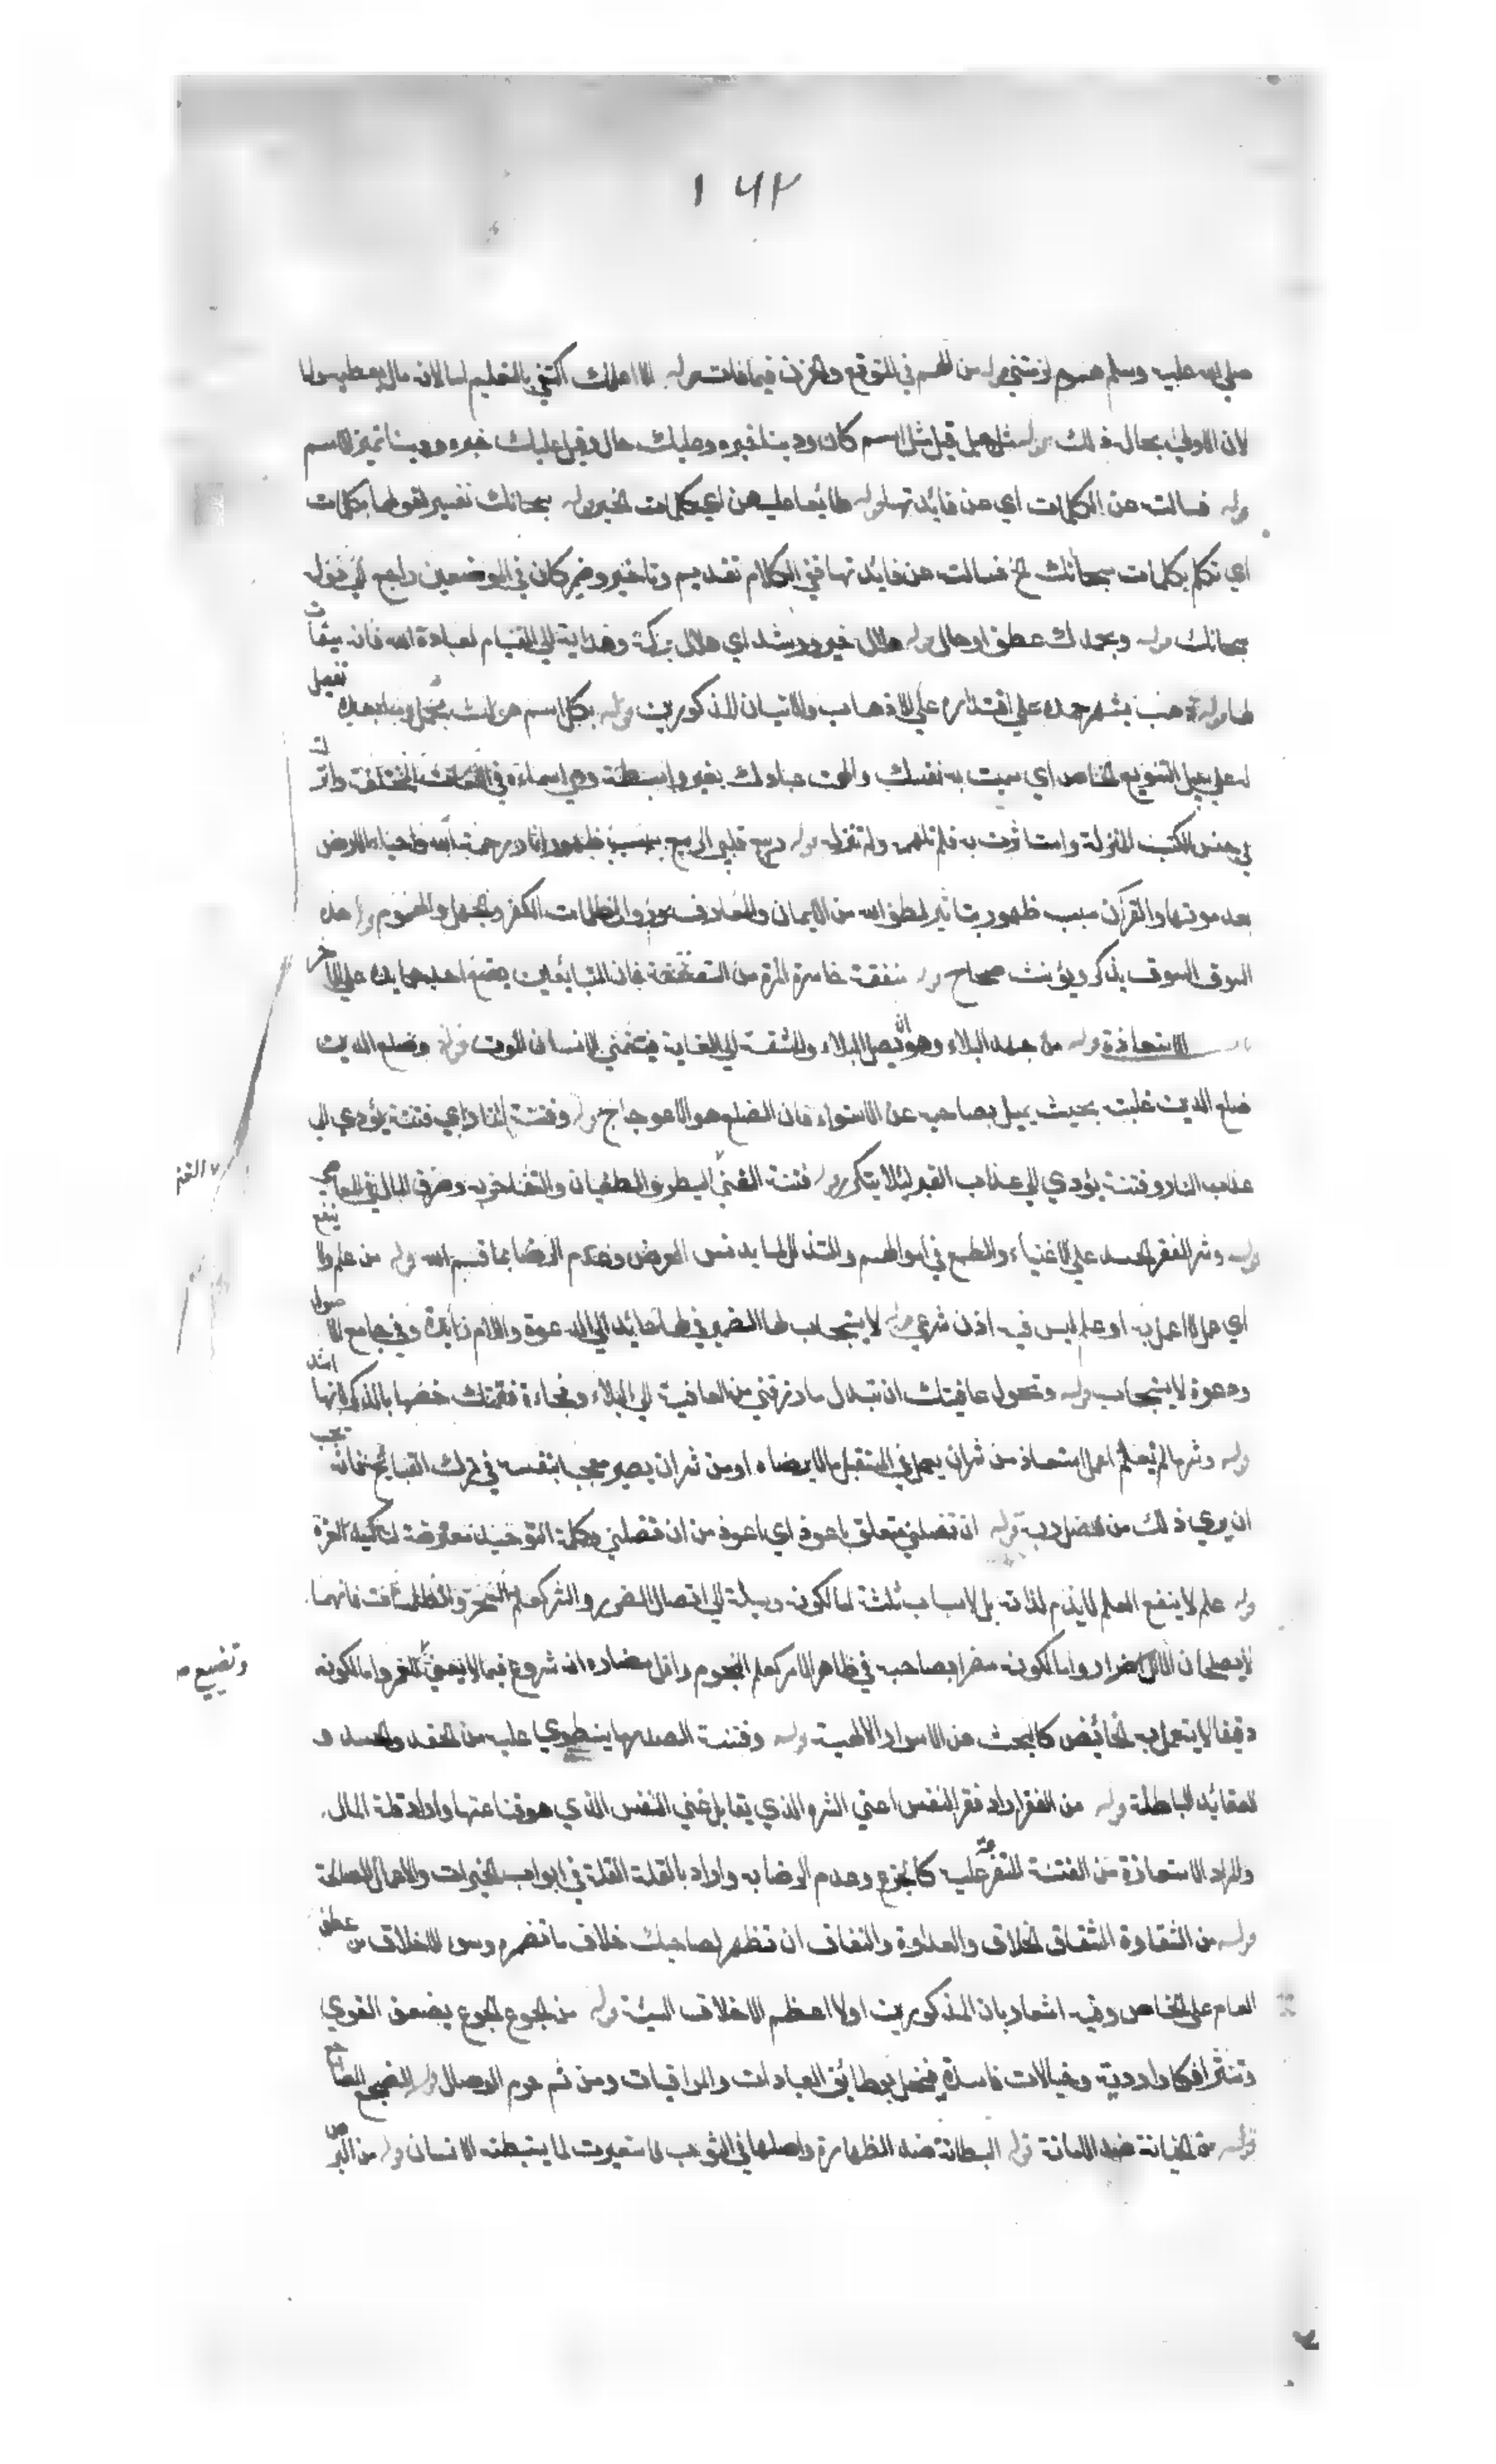 ١٦٢
صلى الله عليه وسلم هموم لزمتني قوله من الهم في المتوقع والحزن فيما فات قوله الا اعلمك اكتفى بالتعليم اما لان مال يعطيه
لان الاولى بحال ذلك قوله مثل جبل قيل مثل اسم كان ودينا خبره وعليك حال وقيل عليك خبره ودينا تميز الاسم
قوله فسالت عن الكلمات اي عن فائدتها قوله طابعا عليهن اي كلمات الخير قوله سبحانك تفسير لقولها بكلمات
اي تكلم بكلمات سبحانك الخ فسالت عن فائدتها ففي الكلام تقديم وتاخير وضمير كان في الموضعين راجع الى قوله
سبحانك قوله وبحمدك عطف او حال قوله هلال خير ورشد اي هلال بركة وهداية الى القيام لعبادة الله فانه ميقات
لها قوله ذهب بشهر حمده على اقتداره على الاذهاب والاتيان المذكورين قوله بكل اسم هو لك مجمل وما بعده تفصيل
له على سبيل التنويع الخاص اي سميت به نفسك والهمت عبادك بغير واسطة وهي اسماءه في اللغات المختلفة وانزلت
في جنس الكتب المنزلة واستاثرت به فلم تلهمه ولم تنزله قوله ربيع قلبي الربيع سبب ظهور اثار رحمة الله واحياء الارض
بعد موتها والقرآن سبب ظهور تاثير لطف الله من الايمان والمعارف وزوال ظلمات الكفر والجهل والهموم قوله هذه
السوق السوق يذكر ويؤنث صحاح قوله صفقة خاسرة المرة من التصفيق فان المتبائعين يضع احدهما يده على الاخر
الاستعاذة قوله من جهد البلاء وهو ان يصل البلاء والمشقة الى الغاية فيتمنى الانسان الموت قوله وضلع الدين
ضلع الدين غلبته بحيث يميل بصاحبه عن الاستواء فان الضلع هو الاعوجاج قوله وفتنة النار اي فتنة يؤدي الى
عذاب النار وفتنة يؤدي الى عذاب القبر لئلا يتكرر قوله فتنة الغنى البطر والطغيان والتفاخر به وصرف المال في المعاصي
قوله وشر الفقر الحسد على الاغنياء والطمع في اموالهم والتذلل لما يدنس العرض وعدم الرضا بما قسم الله قوله من علم لا ينفع
اي علم لا اعمل به او علم ليس فيه اذن شرعي قوله لا يستجاب لها الضمير في لها عائد الى الدعوة واللام زائدة وفي جامع الاصول
ودعوة لا يستجاب قوله وتحول عافيتك ان تبدل ما رزقتني من العافية الى البلاء وفجاءة نقمتك خصها بالذكر لانها اشد
قوله وشر ما لم اعمل استعاذ من شر ان يعمل في المستقبل ما لا يرضاه او من شر ان يصير معجبا بنفسه في ترك القبائح فانه يجب
ان يرى ذلك من فضل ربه قوله ان تضلني متعلق باعوذ اي اعوذ من ان تضلني وكلمة التوحيد معترضة لتاكيد العزة
قوله علم لا ينفع العلم لا يذم لذاته بل لاسباب ثلثة اما لكونه وسيلة الى ايصال الضرر والشر كعلم السحر والطلسمات فانهما
لا يصلحان الا للاضرار واما لكونه مضرا بصاحبه في ظاهر الامر كعلم النجوم واقل مضاره انه شروع فيما لا يعني وتضييع العمر واما لكونه
دقيقا لا يستعمل به الخائض كالبحث عن الاسرار الالهية قوله وفتنة الصدر ما ينطوي عليه من الحقد والحسد و
العقائد الباطلة قوله من الفقر اراد فقر النفس اعني الشره الذي يقابل غنى النفس الذي هو قناعتها واراد قلة المال
والمراد الاستعاذة من الفتنة المتفرعة عليه كالجزع وعدم الرضا به واراد بالقلة القلة في ابواب الخيرات والاعمال الصالحة
قوله من الشقاق الشقاق الخلاف والعداوة والنفاق ان تظهر لصاحبك خلاف ما تضمره وسوء الاخلاق من عطف
العام على الخاص وفيه اشعار بان المذكورين اولا اعظم الاخلاق السيئة قوله من الجوع الجوع يضعف القوى
وتنثر افكارا ردية وخيالات فاسدة فيخل بوظائف العبادات والمراقبات ومن ثم حرم الوصال قوله الضجيع المضاجع
قوله من الخيانة ضد الامانة قوله البطانة ضد الظهارة واصلها في الثوب فاستعيرت لما يستبطنه الانسان قوله من البرص